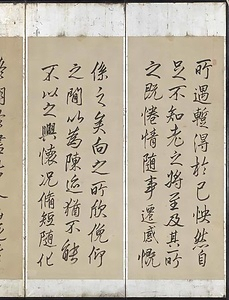 所遇暫得於己怏然自
足不知老之將至及其所
之既惓情隨事遷感慨
係之矣向之所欣俛仰
之間以為陳迹猶不能
不以之興懷況脩短隨化